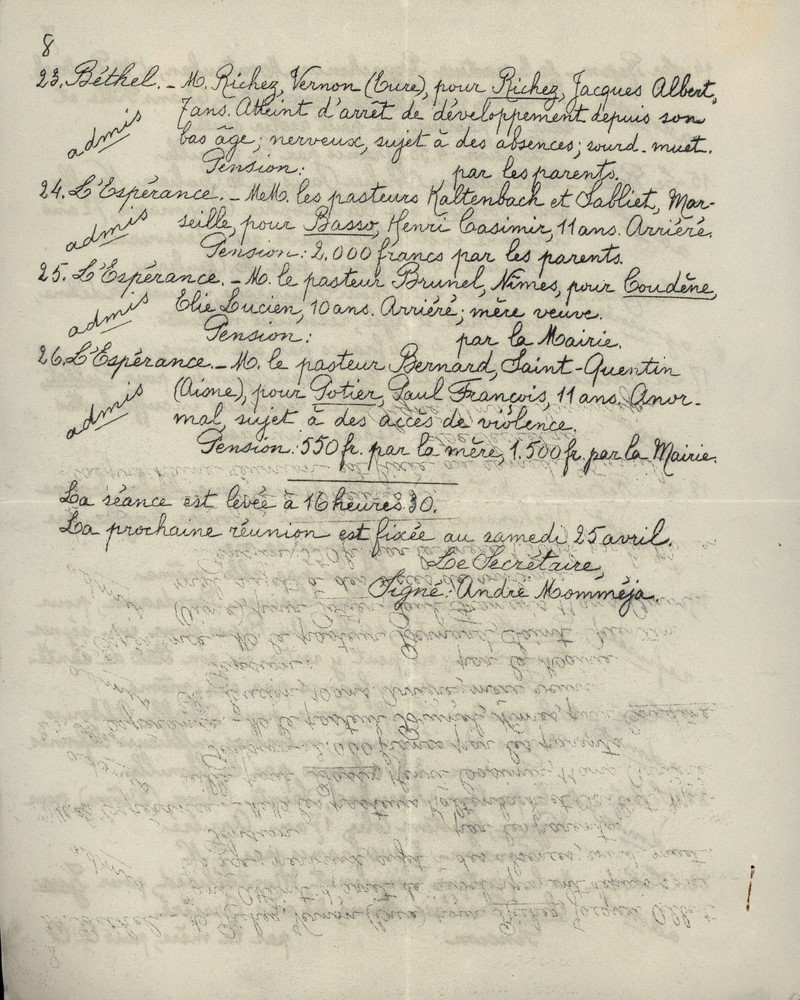 8
23. Béthel. - M. Richez, Vernon (Eure), pour Richez, Jacques Albert,
7 ans. Atteint d'arrêt de développement depuis son
admis
bas âge; nerveux, sujet à des absences; sourd-muet.
Pension: par les parents.
24. L'Espérance. - MeM. les pasteurs Kaltenbach et Sabliet, Mar-
admis
seille, pour Basso, Henri Casimir, 11 ans. Arriéré.
Pension: 2.000 francs par les parents.
25. L'Espérance. - M. le pasteur Brunel, Nîmes, pour Coudène,
admis
Elie Lucien, 10 ans. Arriéré; mère veuve.
Pension: par la Mairie.
26. L'Espérance. - M. le pasteur Bernard, Saint-Quentin
(Aisne), pour Potier, Paul François, 11 ans. Anor-
admis
mal, sujet à des accès de violence.
Pension: 550 fr. par la mère, 1.500 fr. par la Mairie.
La séance est levée à 16 heures 30.
La prochaine réunion est fixée au samedi 25 avril.
Le Secrétaire,
Signé: André Momméja.